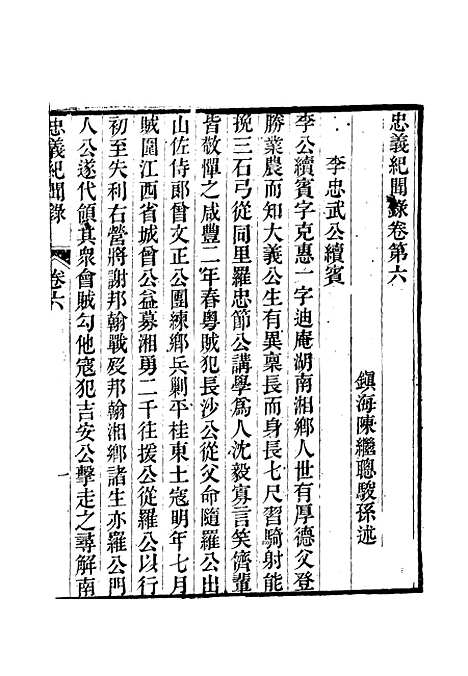 忠義紀聞錄卷第六
鎮海陳繼聰駿孫述
李忠武公續賓
李公續賓字克惠一字迪庵湖南湘鄉人世有厚德父登
勝業農而知大義公生有異稟長而身長七尺習騎射能
挽三石弓從同里羅忠節公講學爲人沈毅寡言笑儕輩
皆敬憚之咸豐二年春粵賊犯長沙公從父命隨羅公出
山佐侍郎曾文正公團練鄉兵剿平桂東土寇明年七月
賊圍江西省城曾公益募湘勇二千往援公從羅公以行
初至失利右營將謝邦翰戰歿邦翰湘鄉諸生亦羅公門
人公遂代領其衆會賊勾他寇犯吉安公擊走之尋解南
忠義紀聞錄
卷六
一